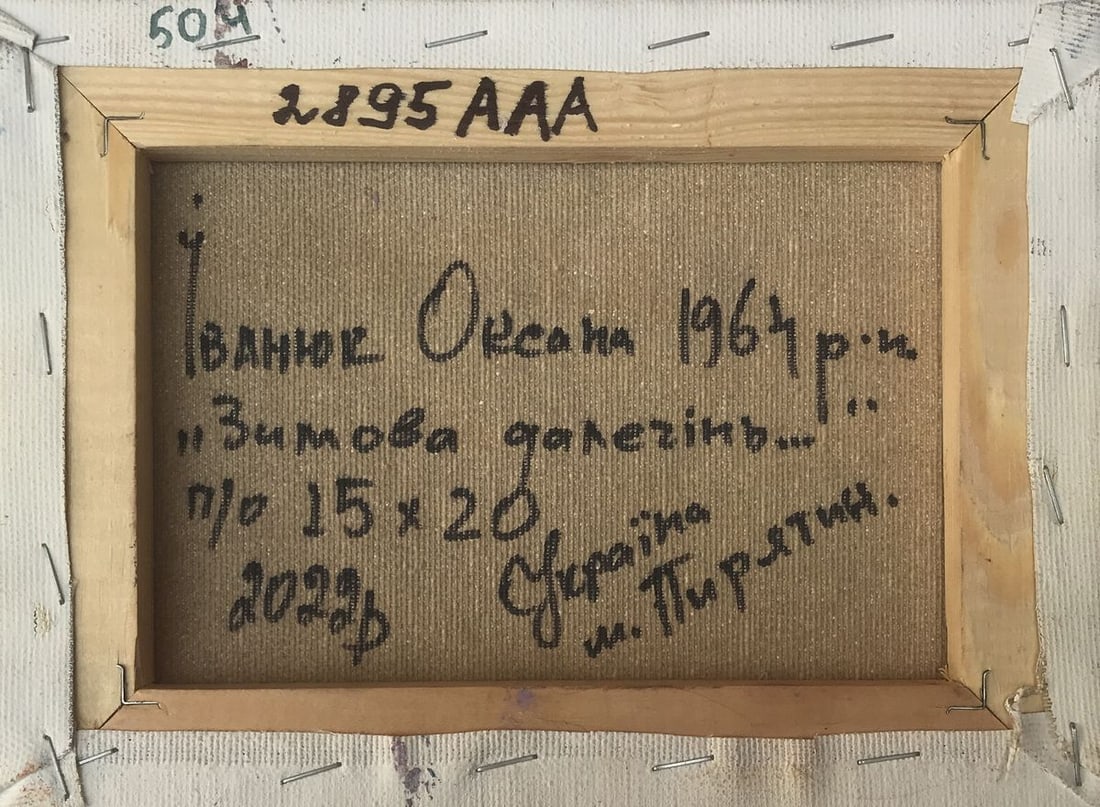 50ч
2895 ААА
Іванюк Оксана 1964 р.н.
„Зимова далечінь..."
п/о 15 х 20
2022р
Україна
м. Пирятин.